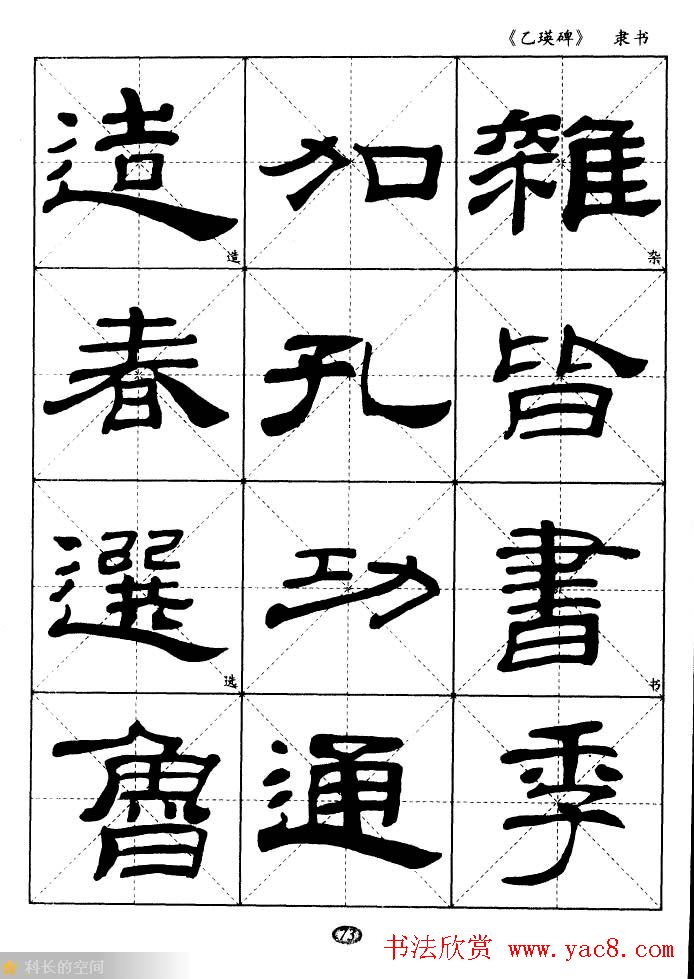 《乙瑛碑》 隶书
雜 杂
皆
書 书
季
加
孔
功
通
造 造
春
選 选
魯
73
科长的空间
书法欣赏 www.yac8.com